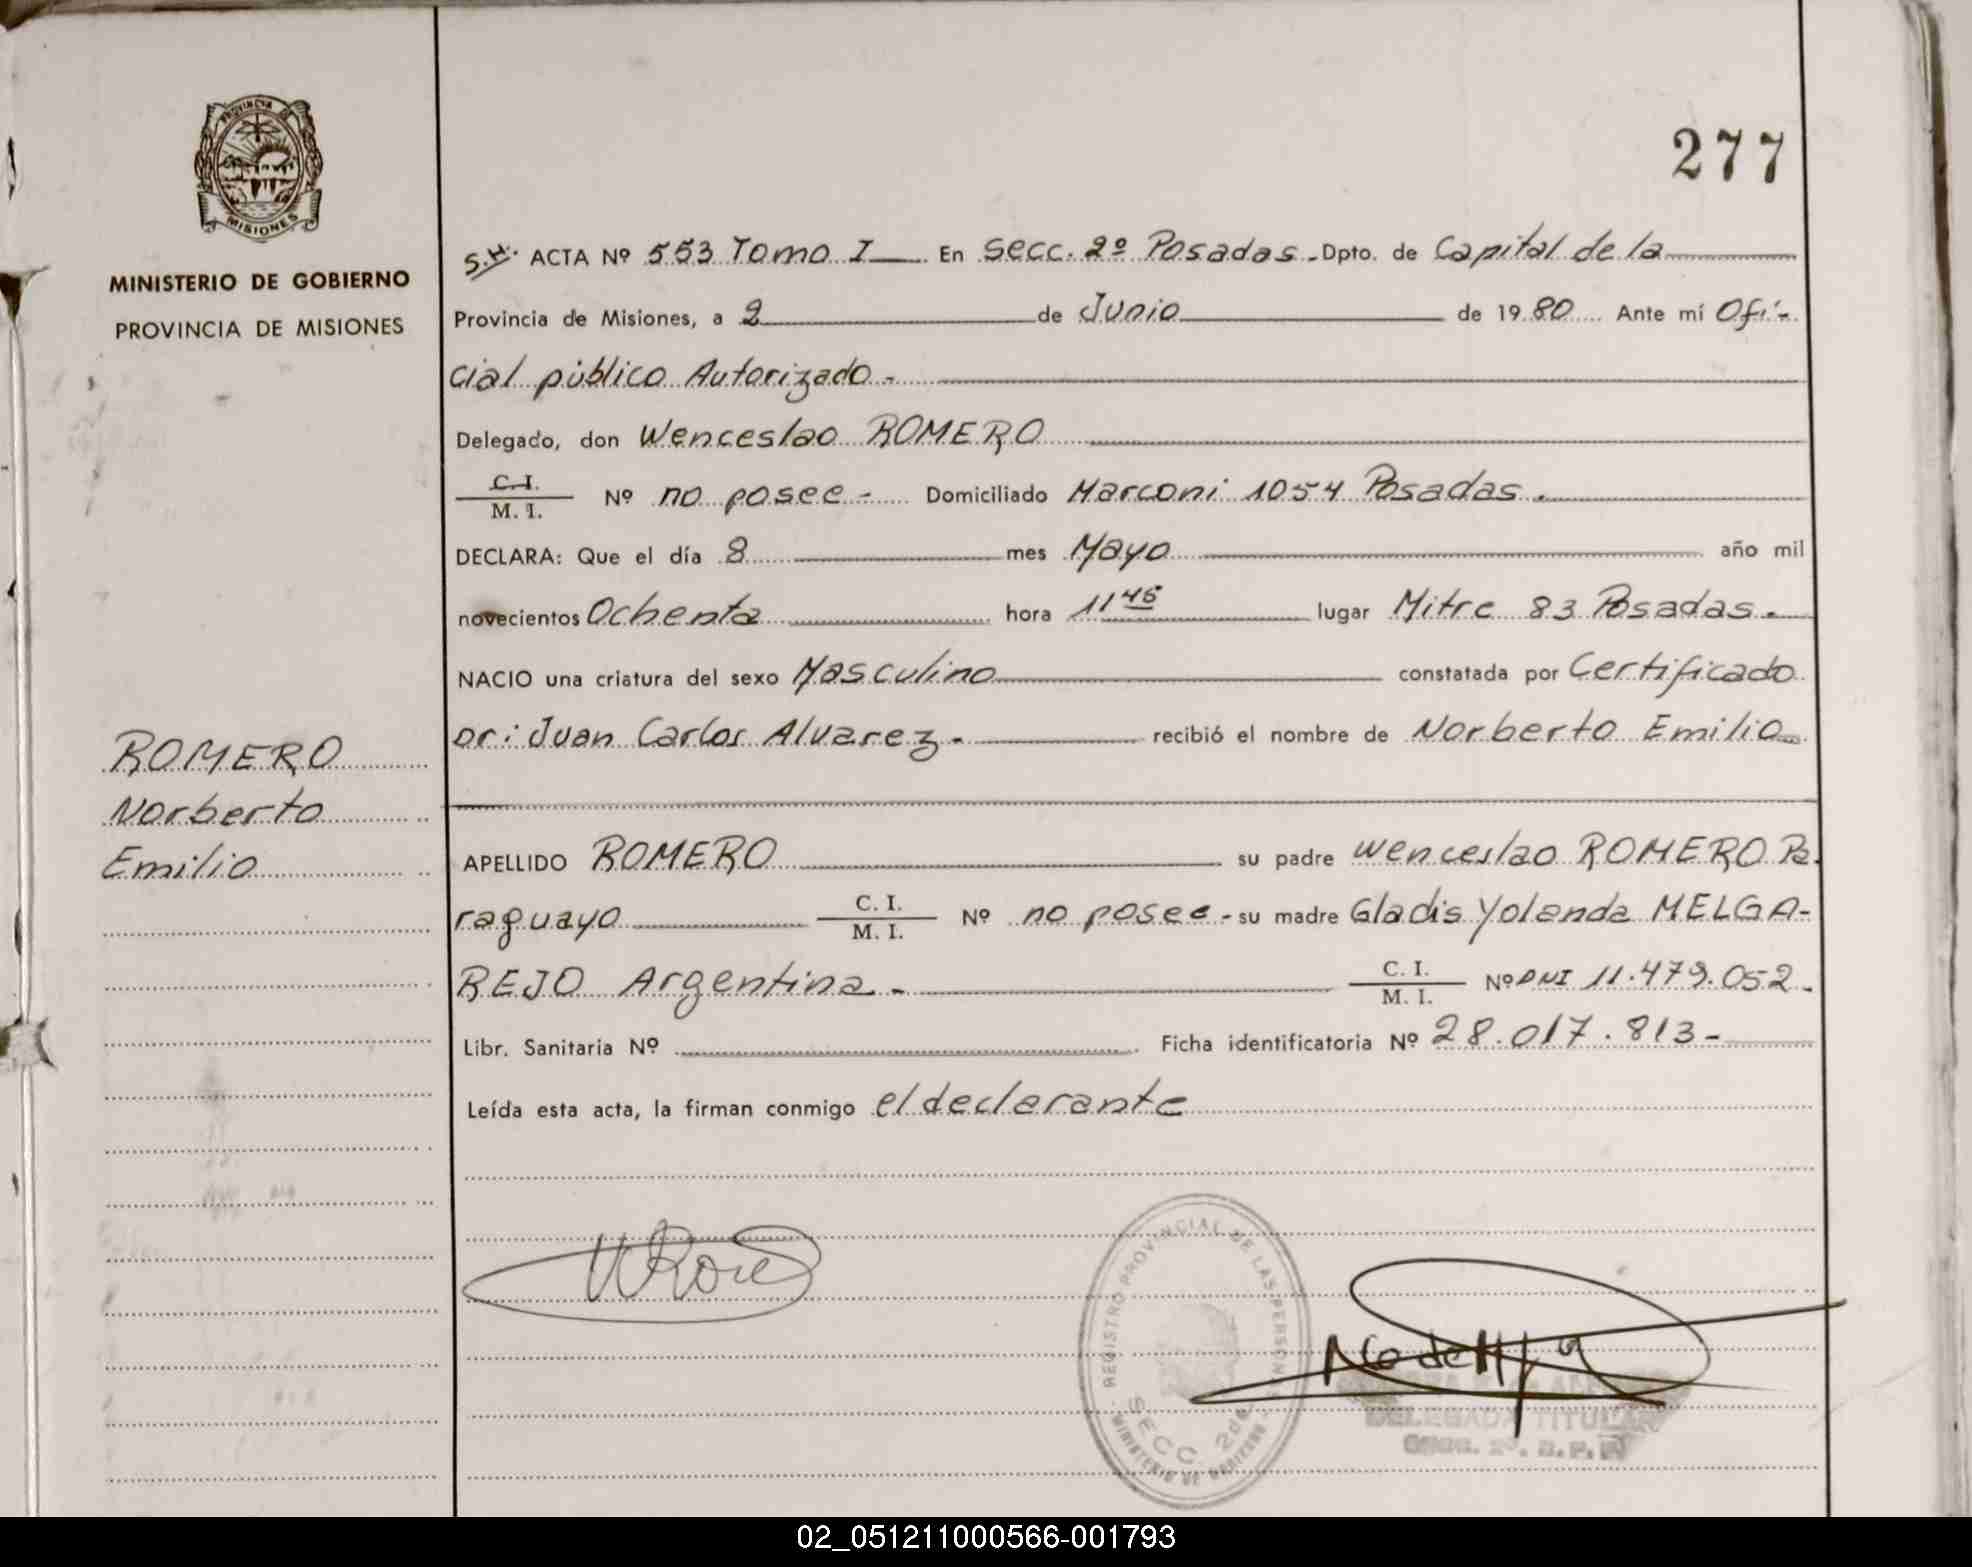 277
PROVINCIA DE
MISIONES
MINISTERIO DE GOBIERNO
PROVINCIA DE MISIONES
S.H. ACTA Nº 553 Tomo I En Secc. 2º Posadas. Dpto. de Capital de la
Provincia de Misiones, a 2 de Junio de 1980 Ante mí Ofi-
cial público Autorizado-
Delegado, don Wenceslao ROMERO
C. I.
M. I. Nº no posee - Domiciliado Marconi 1054 Posadas.
DECLARA: Que el día 8 mes Mayo año mil
novecientos Ochenta hora 11 45 lugar Mitre 83 Posadas.
NACIO una criatura del sexo Masculino constatada por Certificado
Dr: Juan Carlos Alvarez. recibió el nombre de Norberto Emilio
ROMERO
Norberto
Emilio
APELLIDO ROMERO su padre Wenceslao ROMERO Pa-
raguayo C. I. / M. I. Nº no posee - su madre Gladis Yolanda MELGA-
REJO Argentina - C. I. / M. I. Nº DNI 11.479.052.
Libr. Sanitaria Nº Ficha identificatoria Nº 28.017.813-
Leída esta acta, la firman conmigo el declarante
REGISTRO PROVINCIAL DE LAS PERSONAS
SECC. 2da
MINISTERIO DE GOBIERNO
DELEGADA TITULAR
02_051211000566-001793